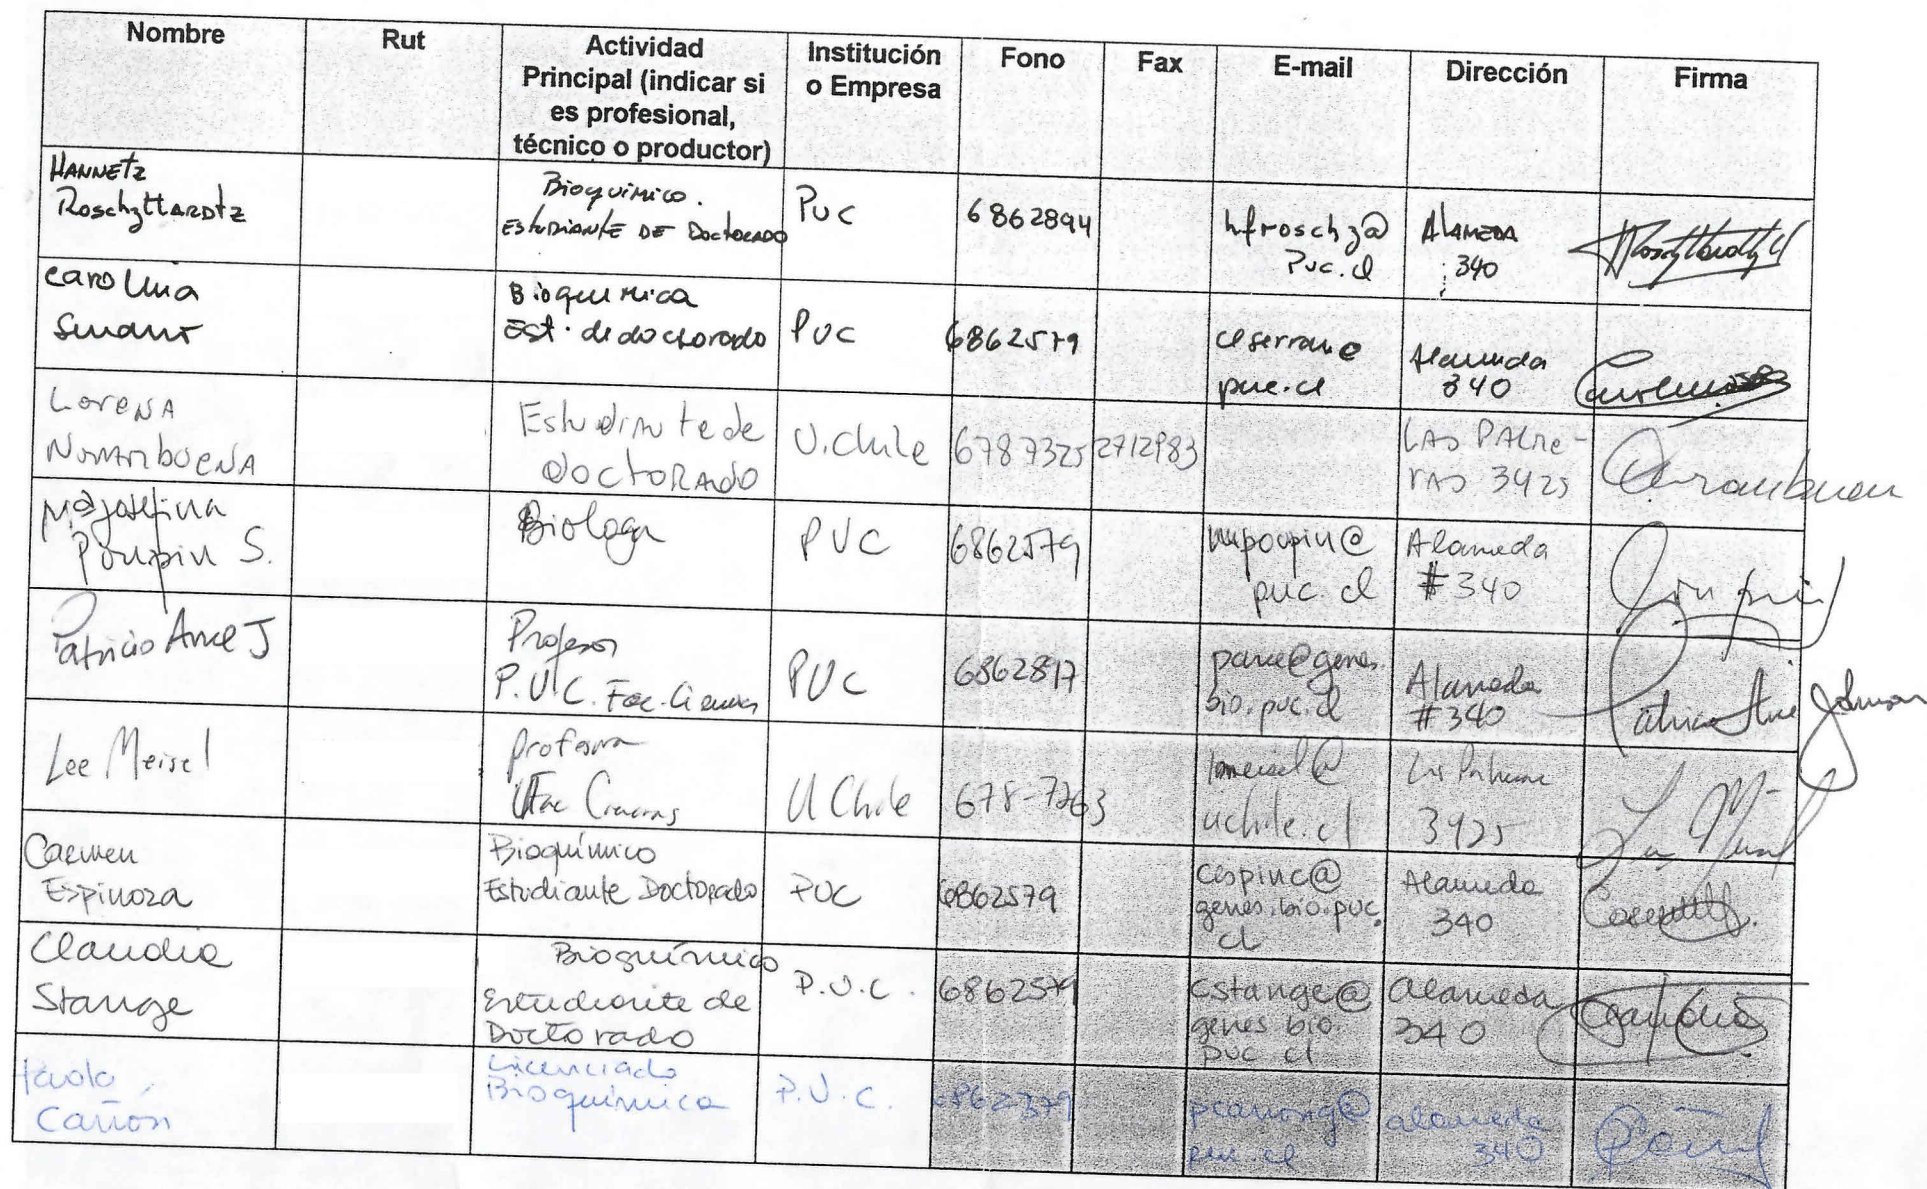 Nombre
Rut
Actividad
Principal (indicar si
es profesional,
técnico o productor)
Institución
o Empresa
Fono
Fax
E-mail
Dirección
Firma
HANNETZ
RoschzttARDtz
Bioquímico.
EStUDIANTE DE DoctoRADO
PUC
6862894
hfroschz@
Puc.cl
ALAMEDA
340
Carolina
Bioquimica
Est. de doctorado
PUC
6862579
puc.cl
Alameda
340
LoreNA
Estudiante de
doctoRAdo
U.Chile
6787325
2712983
3425
Poupin S.
Biologa
PUC
6862579
mpoupin@
puc.cl
Alameda
#340
Patricio Arce J
Profesor
P.U.C. Fac. Ciencias
PUC
6862817
parce@genes.
bio.puc.cl
Alameda
#340
Patricio Arce Johnson
Lee Meisel
profesora
U Chile
678-7263
lmeisel@
uchile.cl
3425
Carmen
Espinoza
Bioquímico
Estudiante Doctorado
PUC
6862579
cespinc@
genes.bio.puc.
cl
Alameda
340
Claudia
Stange
Bioquímico
Estudiante de
Doctorado
P.U.C.
6862579
cstange@
genes bio.
puc cl
alameda
340
Paola
Cañón
Licenciado
Bioquímica
P.U.C.
pcanong@
puc.cl
alameda
340